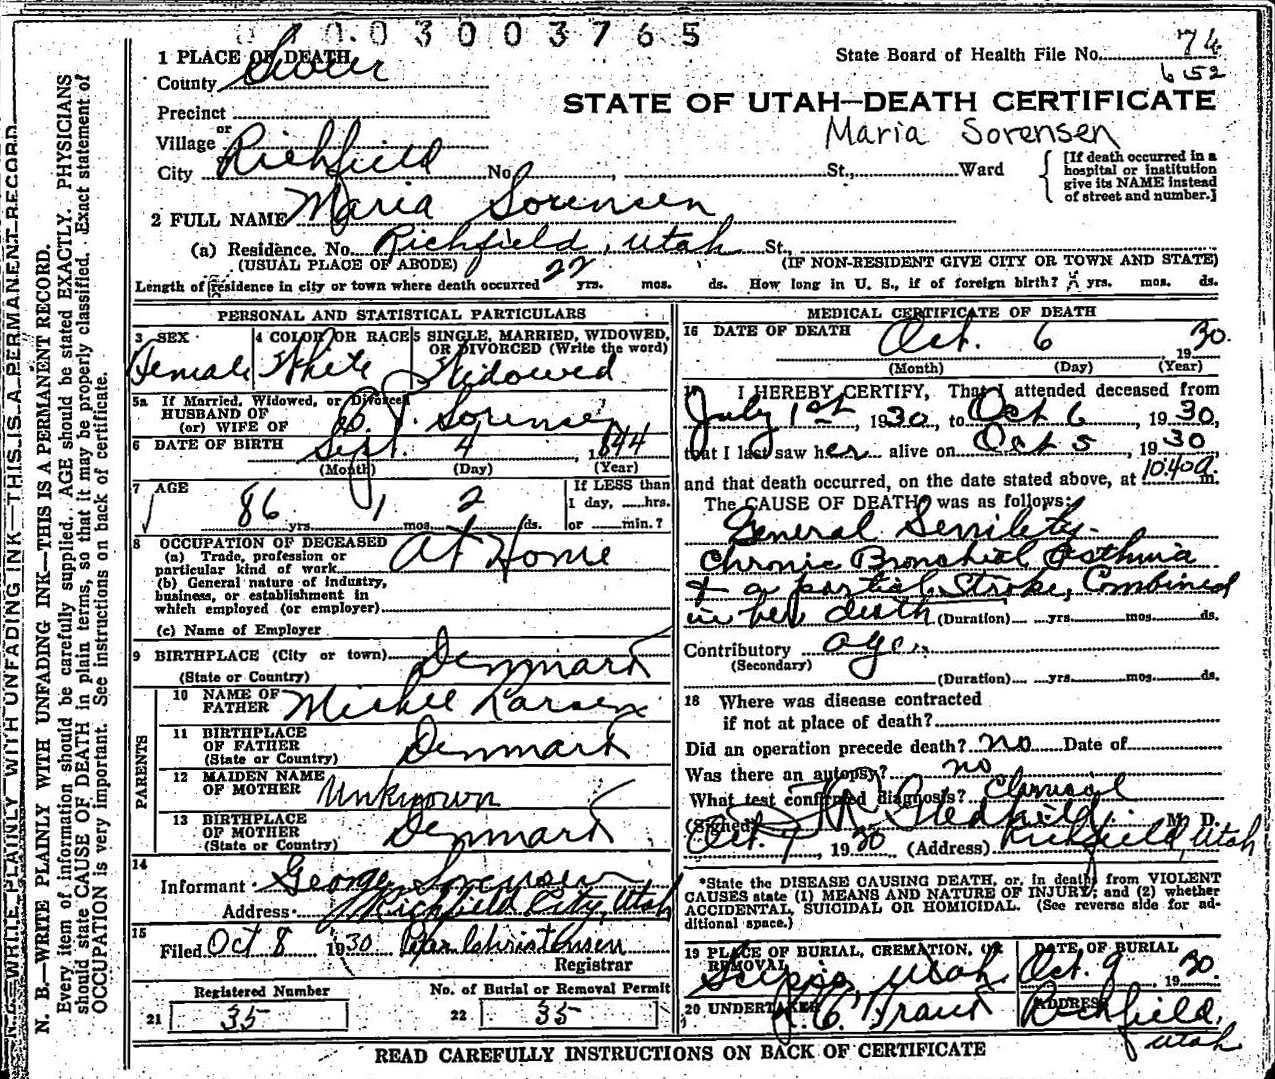 0 0.0 3 0 0 3 7 6 5
State Board of Health File No. 74
652
STATE OF UTAH—DEATH CERTIFICATE
Maria Sorensen
1 PLACE OF DEATH
County Sevier
Precinct
or
Village
City Richfield No. , St., Ward
[If death occurred in a hospital or institution give its NAME instead of street and number.]
2 FULL NAME Maria Sorensen
(a) Residence. No. Richfield, Utah St.,
(USUAL PLACE OF ABODE) (IF NON-RESIDENT GIVE CITY OR TOWN AND STATE)
Length of residence in city or town where death occurred 22 yrs. mos. ds. How long in U. S., if of foreign birth? yrs. mos. ds.
PERSONAL AND STATISTICAL PARTICULARS
3 SEX
Female
4 COLOR OR RACE
White
5 SINGLE, MARRIED, WIDOWED, OR DIVORCED (Write the word)
Widowed
5a If Married, Widowed, or Divorced
HUSBAND OF
(or) WIFE OF Sorensen
6 DATE OF BIRTH Sept. 4, 1844
(Month) (Day) (Year)
7 AGE
86 yrs. 1 mos. 2 ds.
If LESS than
1 day, ......hrs.
or ......min.?
8 OCCUPATION OF DECEASED
(a) Trade, profession or particular kind of work At Home
(b) General nature of industry, business, or establishment in which employed (or employer)
(c) Name of Employer
9 BIRTHPLACE (City or town)
(State or Country) Denmark
PARENTS
10 NAME OF FATHER Michel Larsen
11 BIRTHPLACE OF FATHER
(State or Country) Denmark
12 MAIDEN NAME OF MOTHER Unknown
13 BIRTHPLACE OF MOTHER
(State or Country) Denmark
14
Informant George Sorensen
Address Richfield City, Utah
15
Filed Oct 8 1930 Christensen
Registrar
Registered Number
21 35
No. of Burial or Removal Permit
22 35
MEDICAL CERTIFICATE OF DEATH
16 DATE OF DEATH Oct. 6 1930.
(Month) (Day) (Year)
17 I HEREBY CERTIFY, That I attended deceased from
July 1st, 1930, to Oct 6, 1930,
that I last saw her alive on Oct 5, 1930
and that death occurred, on the date stated above, at 10:40 a. m.
The CAUSE OF DEATH was as follows:
General Senility-
Chronic Bronchial Asthmia
& a partial Stroke, Combined
in her death (Duration) yrs. mos. ds.
Contributory age
(Secondary)
(Duration) yrs. mos. ds.
18 Where was disease contracted
if not at place of death?
Did an operation precede death? no Date of
Was there an autopsy? no
What test confirmed diagnosis? Clinical
(Signed) M. D.
Oct. 7, 1930 (Address) Richfield, Utah
*State the DISEASE CAUSING DEATH, or, in deaths from VIOLENT
CAUSES state (1) MEANS AND NATURE OF INJURY; and (2) whether
ACCIDENTAL, SUICIDAL OR HOMICIDAL. (See reverse side for ad-
ditional space.)
19 PLACE OF BURIAL, CREMATION, OR REMOVAL
Scipio, Utah.
DATE OF BURIAL
Oct. 9 1930.
20 UNDERTAKER
ADDRESS
Richfield,
Utah
READ CAREFULLY INSTRUCTIONS ON BACK OF CERTIFICATE
N. B.—WRITE PLAINLY WITH UNFADING INK—THIS IS A PERMANENT RECORD.
N. B.—WRITE PLAINLY WITH UNFADING INK—THIS IS A PERMANENT RECORD.
Every item of information should be carefully supplied. AGE should be stated EXACTLY. PHYSICIANS
should state CAUSE OF DEATH in plain terms, so that it may be properly classified. Exact statement of
OCCUPATION is very important. See instructions on back of certificate.